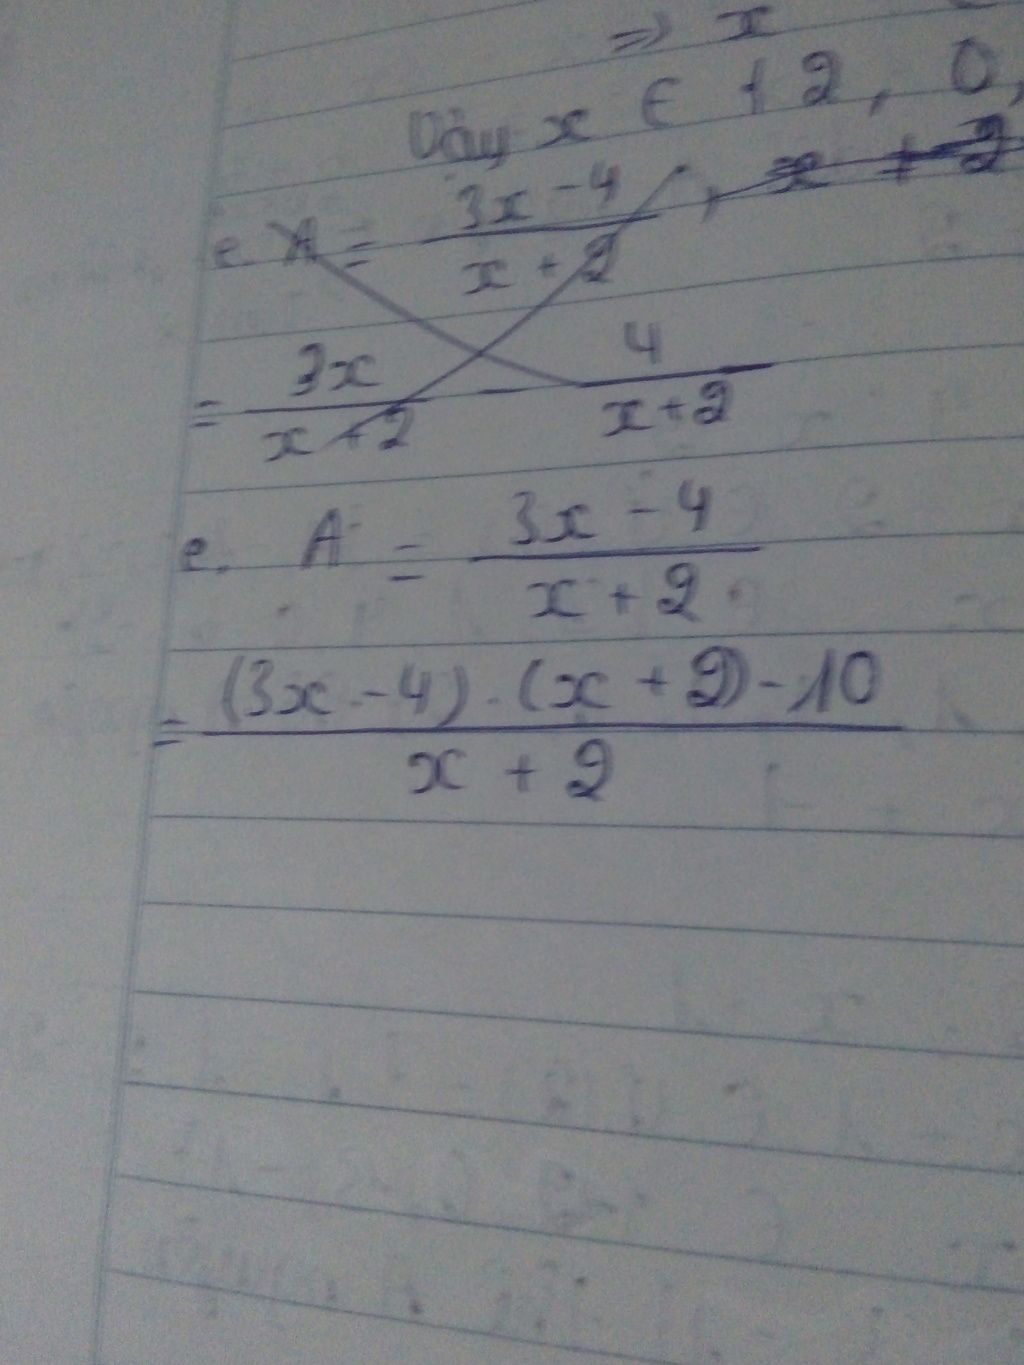 => x
Vậy x ∈ { 2, 0,
e A = (3x - 4)/(x + 2) , x ≠ -2
= 3x/(x + 2) - 4/(x + 2)
e. A = (3x - 4)/(x + 2)
= ((3x - 4) . (x + 2) - 10)/(x + 2)